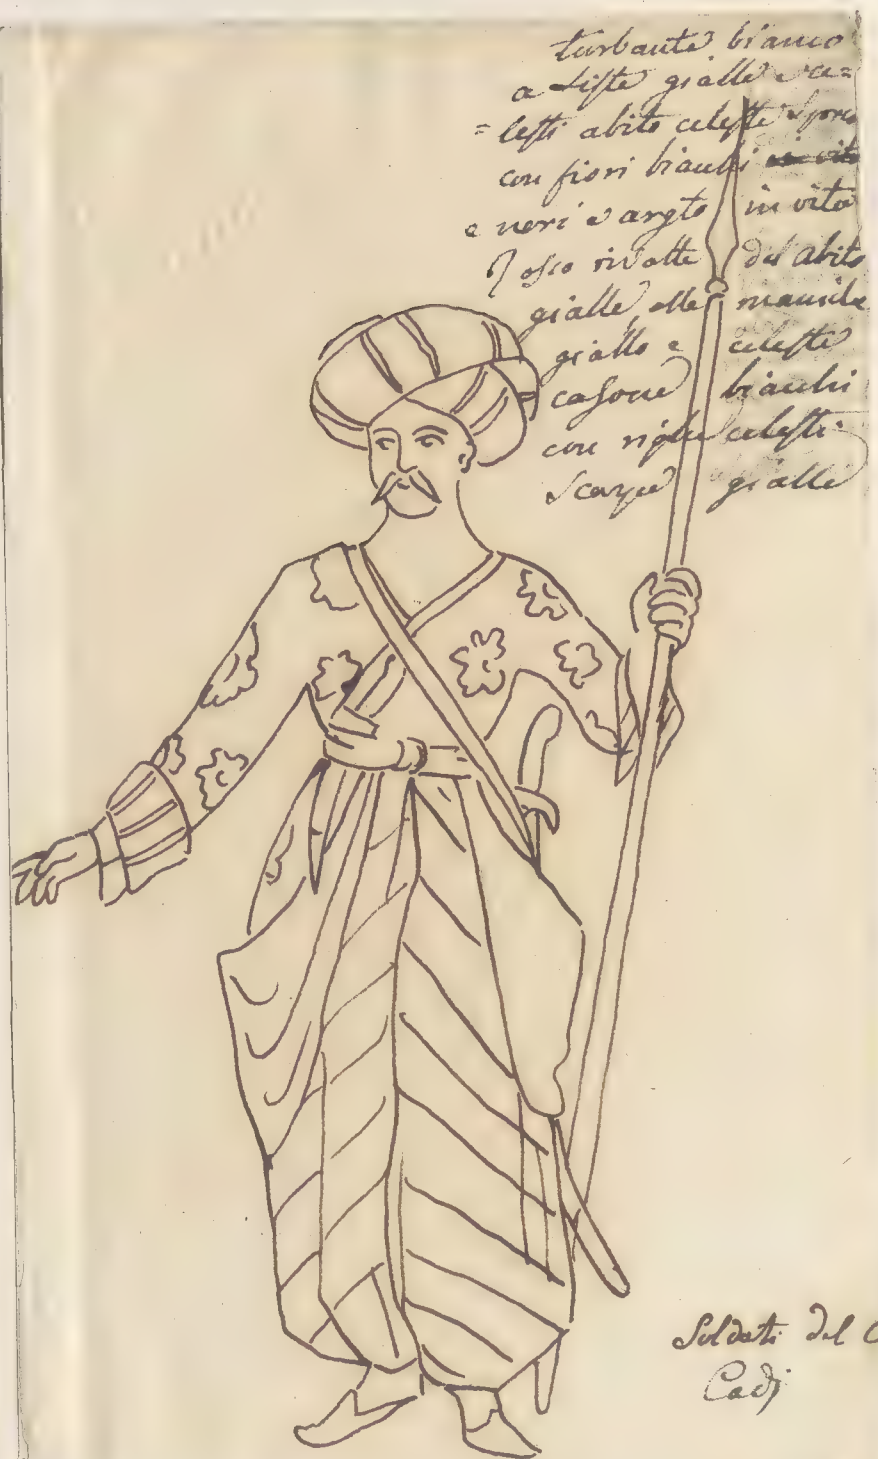 turbante bianco
a liste gialle e ce=
=lesti abito celeste sporco
con fiori bianchi
e neri e argto in vita
rivolte del abito
gialle, alle maniche
giallo e celeste
calsone bianchi
con righe celesti
scarpe gialle
Soldati del
Cadj